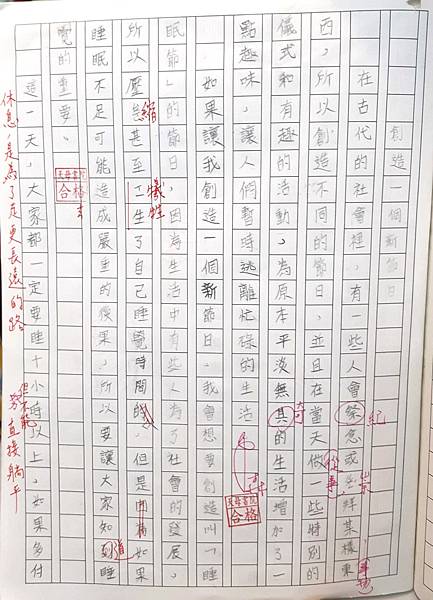 創造一個新節日
在古代的社會裡,有一些人會祭念或拜某樣東
西,所以創造不同的節日,並且在當天做一些特別的
儀式和有趣的活動,為原本平淡無其的生活增加了一
點趣味,讓人們暫時逃離忙碌的生活
如果讓我創造一個新節日,我會想要創造叫「睡
眠節」的節日,因為生活中有些人為了社會的發展,
所以壓縮甚至犧牲了自己睡覺時間的,但是因為如果
睡眠不足可能造成嚴重的後果,所以要讓大家知道睡
覺的重要。
這一天,大家都一定要睡十小時以上,如果多付
紀
崇
事物
從事
奇
天母書院
合格
天母書院
合格
休息,是為了走更長遠的路
但不能
直接躺平